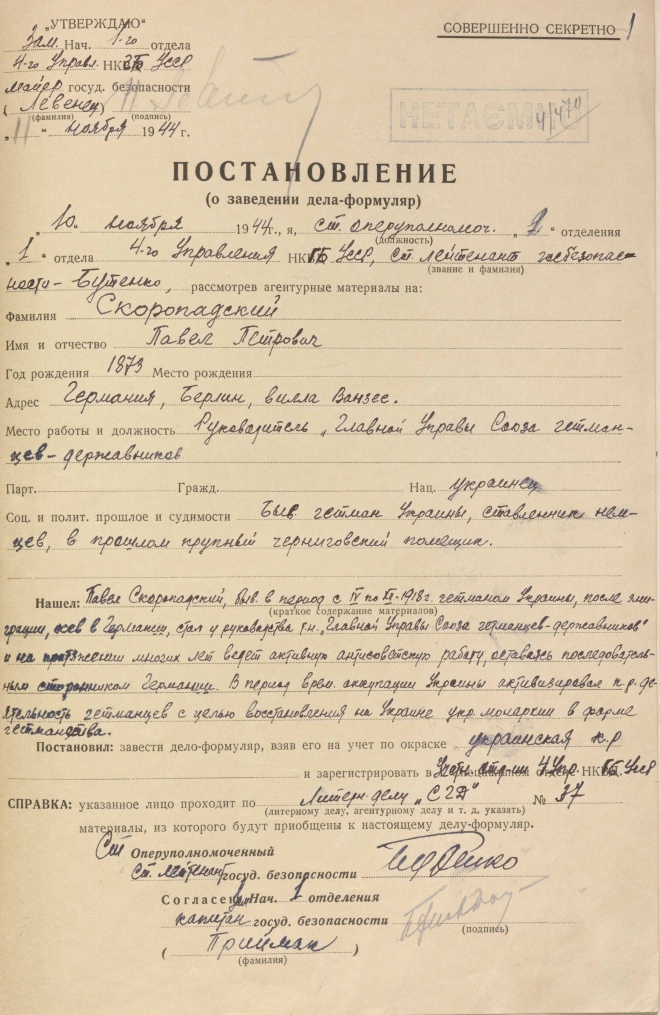 „УТВЕРЖДАЮ“
СОВЕРШЕННО СЕКРЕТНО 1
Зам. Нач. 1-го отдела
4-го Управл. НКГБ УССР
майор госуд. безопасности
НЕТАЄМНО
4/470
( Левенец )
(фамилия) (подпись)
„ 11 “ ноября 1944 г.
ПОСТАНОВЛЕНИЕ
(о заведении дела-формуляр)
„ 10. ноября 1944 г., я, ст. оперуполномоч. „ 2 “ отделения
(должность)
„ 1 “ отдела 4-го Управления НКГБ УССР, ст. лейтенант госбезопас-
(звание и фамилия)
ности - Бутенко, рассмотрев агентурные материалы на:
Фамилия Скоропадский
Имя и отчество Павел Петрович
Год рождения 1873 Место рождения
Адрес Германия, Берлин, вилла Ванзее.
Место работы и должность Руководитель „Главной Управы Союза гетман-
цев-державников
Парт. Гражд. Нац. украинец
Соц. и полит. прошлое и судимости Быв. гетман Украины, ставленник нем-
цев, в прошлом крупный черниговский помещик.
Нашел: Павел Скоропадский, быв. в период с IV по XII-1918 г. гетманом Украины, после эми-
(краткое содержание материалов)
грации, осев в Германии, стал у руководства т.н. „Главной Управы Союза гетманцев-державников“
и на протяжении многих лет ведет активную антисоветскую работу, оставаясь последователь-
ным сторонником Германии. В период врем. оккупации Украины активизировал к.р. де-
ятельность гетманцев с целью восстановления на Украине укр. монархии в форме
гетманства.
Постановил: завести дело-формуляр, взяв его на учет по окраске украинская к.р
и зарегистрировать в Учетн. отд-нии 4 Упр. НКГБ УССР
СПРАВКА: указанное лицо проходит по Литерн. делу „СГД“ № 37
(литерному делу, агентурному делу и т. д. указать)
материалы, из которого будут приобщены к настоящему делу-формуляр.
Ст Оперуполномоченный
Ст. лейтенант госуд. безопасности
Согласен: Зам Нач. 1 отделения
капитан госуд. безопасности
(подпись)
( Прийман )
(фамилия)